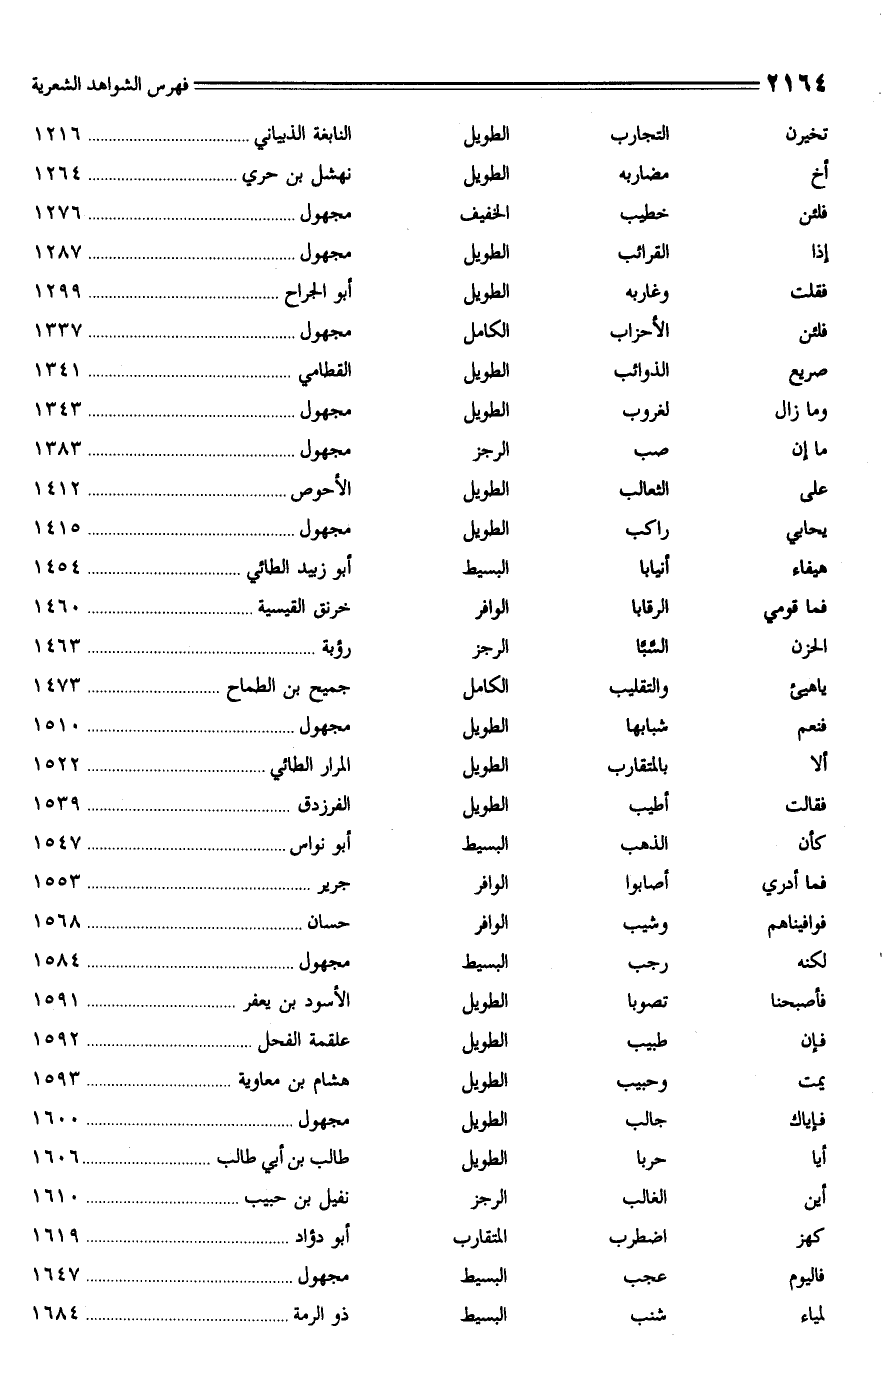 ٢١٦٤ فهرس الشواهد الشعرية
تخيرن التجارب الطويل النابغة الذبياني ١٢١٦
أخ مضاربه الطويل نهشل بن حري ١٢٦٤
فلئن خطيب الخفيف مجهول ١٢٧٦
إذا القرائب الطويل مجهول ١٢٨٧
فقلت وغاربه الطويل أبو الجراح ١٢٩٩
فلئن الأحزاب الكامل مجهول ١٣٣٧
صريع الذوائب الطويل القطامي ١٣٤١
وما زال لغروب الطويل مجهول ١٣٤٣
ما إن صب الرجز مجهول ١٣٨٣
على الثعالب الطويل الأحوص ١٤١٢
يحابي راكب الطويل مجهول ١٤١٥
هيفاء أنيابا البسيط أبو زبيد الطائي ١٤٥٤
فما قومي الرقابا الوافر خرنق القيسية ١٤٦٠
الحزن السَّبَّا الرجز رؤبة ١٤٦٣
ياهيئ والتقليب الكامل جميح بن الطماح ١٤٧٣
فنعم شبابها الطويل مجهول ١٥١٠
ألا بالمتقارب الطويل المرار الطائي ١٥٢٢
فقالت أطيب الطويل الفرزدق ١٥٣٩
كأن الذهب البسيط أبو نواس ١٥٤٧
فما أدري أصابوا الوافر جرير ١٥٥٣
فوافيناهم وشيب الوافر حسان ١٥٦٨
لكنه رجب البسيط مجهول ١٥٨٤
فأصبحنا تصوبا الطويل الأسود بن يعفر ١٥٩١
فإن طبيب الطويل علقمة الفحل ١٥٩٢
يمت وحبيب الطويل هشام بن معاوية ١٥٩٣
فإياك جالب الطويل مجهول ١٦٠٠
أيا حربا الطويل طالب بن أبي طالب ١٦٠٦
أين الغالب الرجز نفيل بن حبيب ١٦١٠
كهز اضطرب المتقارب أبو دؤاد ١٦١٩
فاليوم عجب البسيط مجهول ١٦٤٧
لمياء شنب البسيط ذو الرمة ١٦٨٤